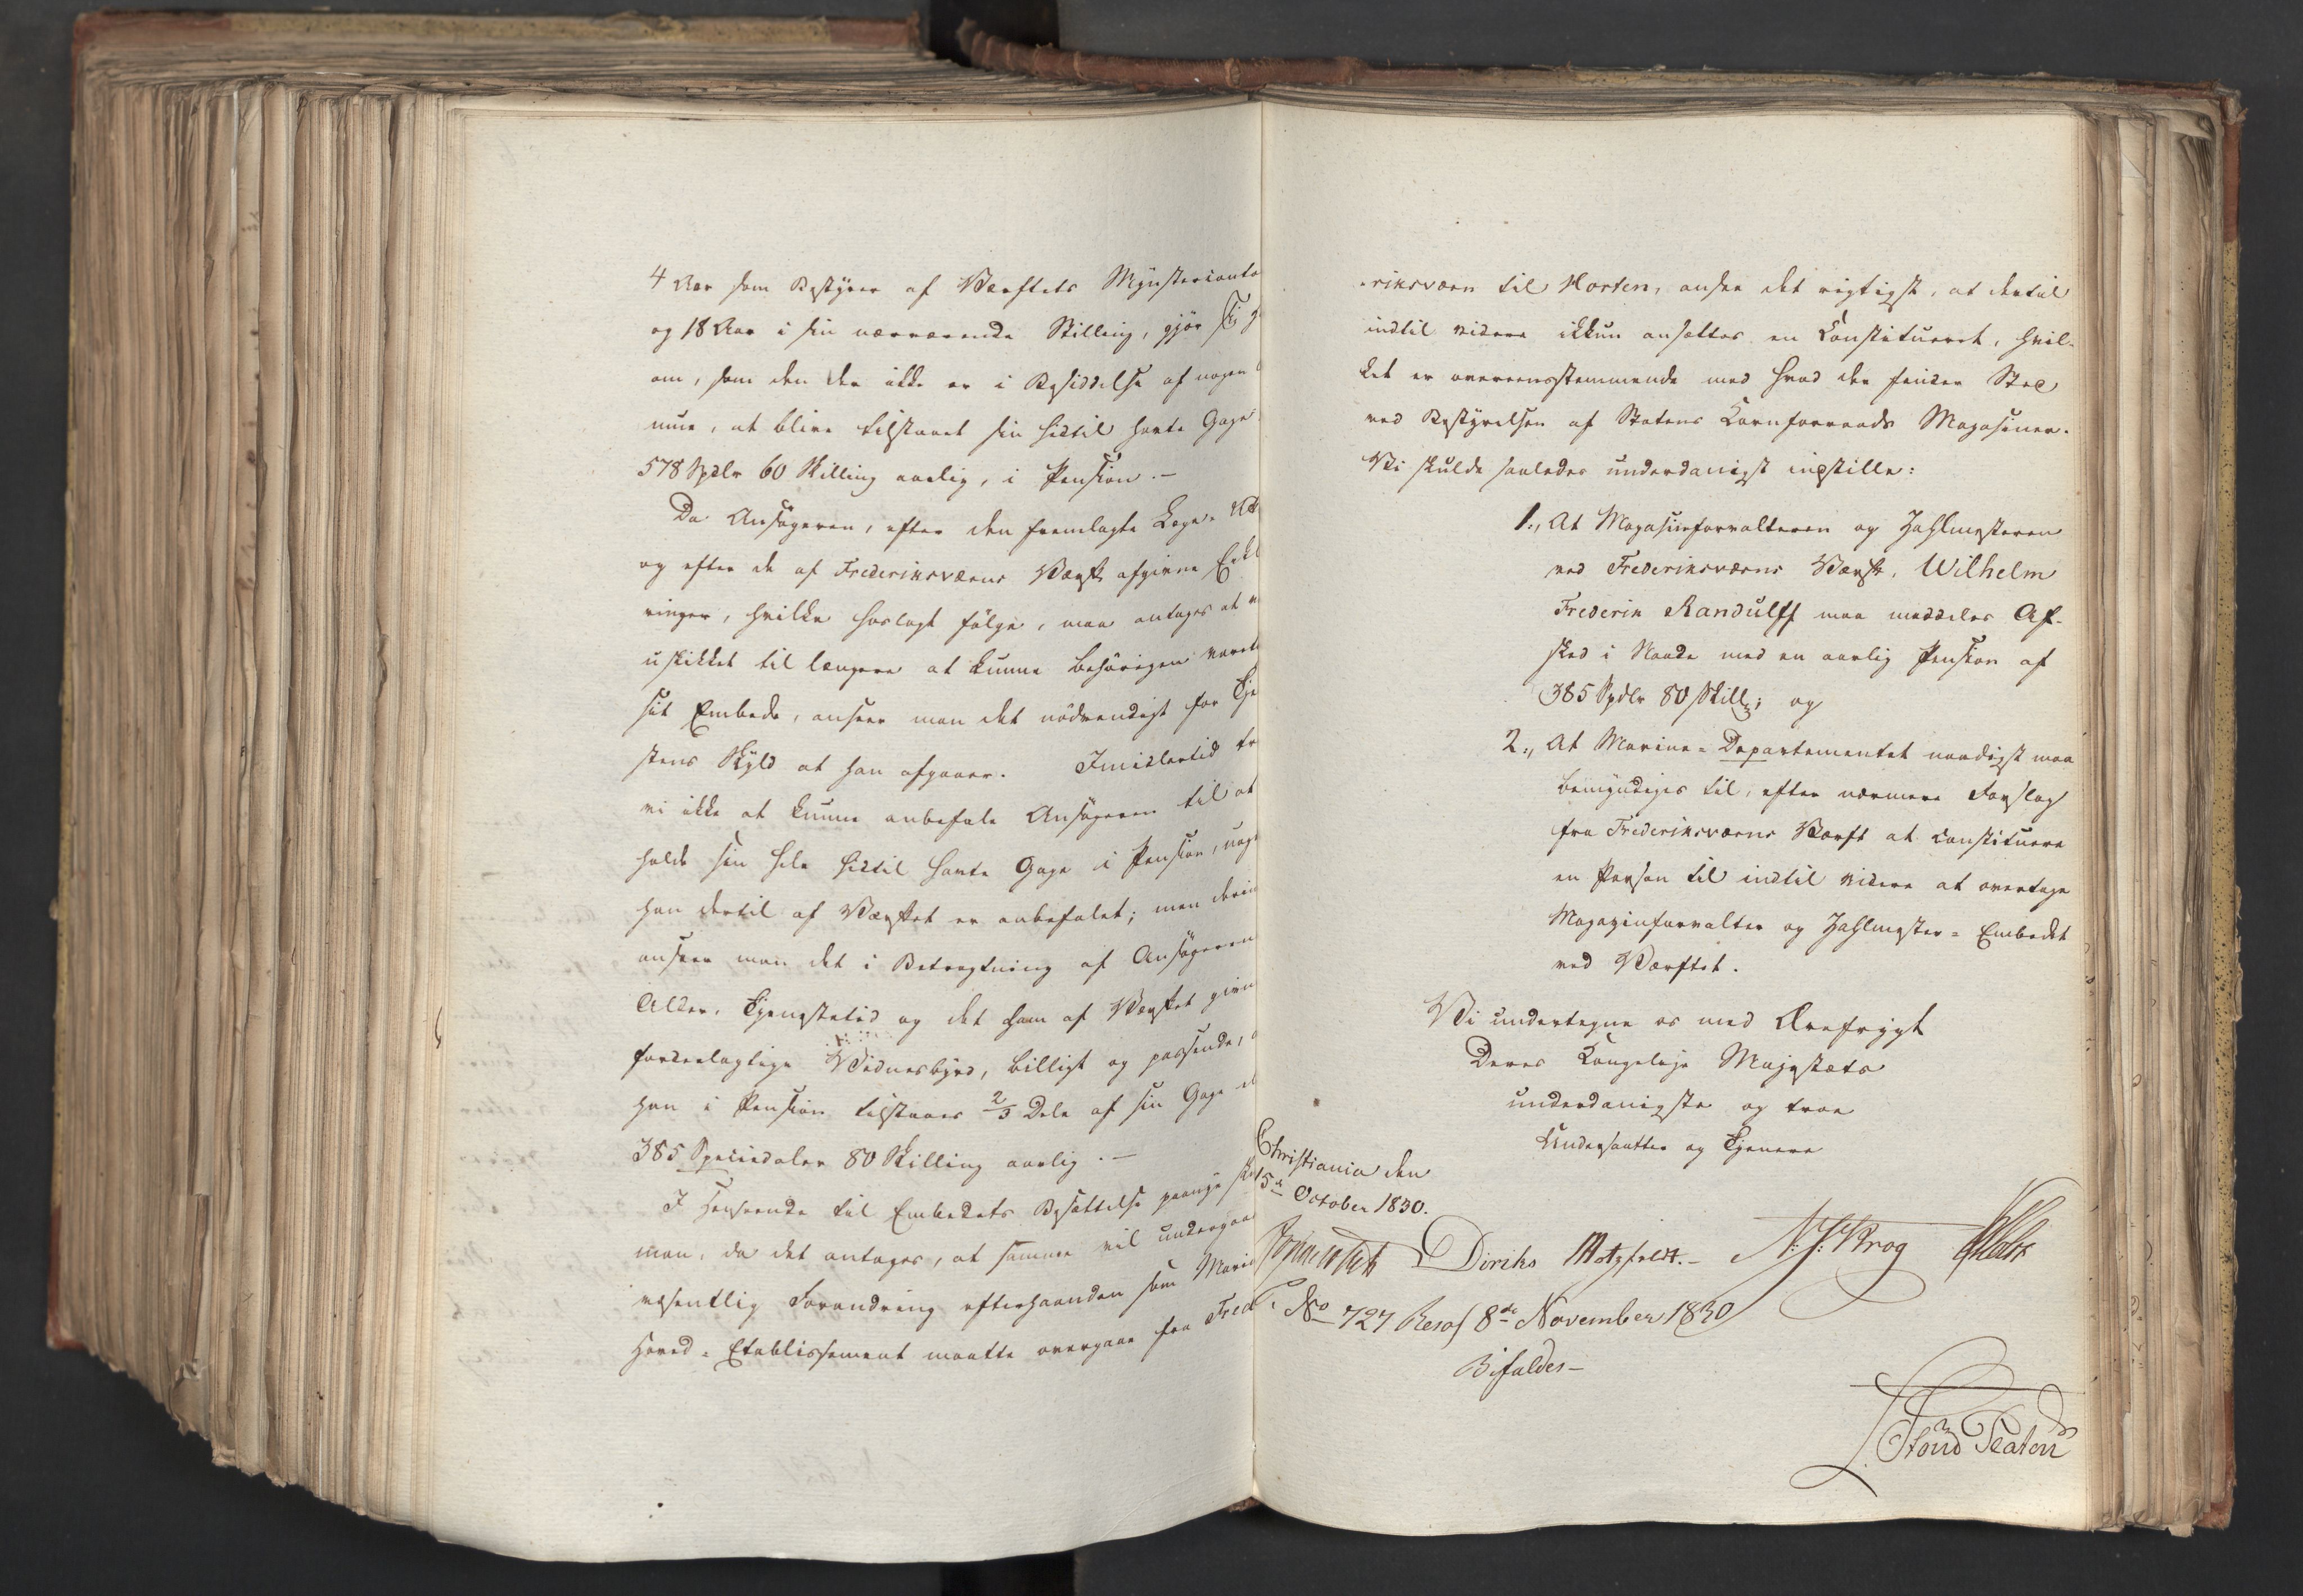 4 Aar som Bestyrer af Værftets Mynsterconto
og 18 Aar i sin nærværende Stilling, gjør
om, som den der ikke er i Besiddelse af nogen
mue, at blive tilstaaet sin hidtil havte Gage
578 Spdlr 60 Skilling aarlig, i Pension. –
Da Ansøgeren, efter den fremlagte Læge-
og efter de af Frederiksværns Værft afgivne Erkl
ringer, hvilke hoslagt følge, maa antages at
uskikket til længere at kunne behørigen
sit Embede, anseer man det nødvendigt for Tje
stens Skyld at han afgaaer. Imidlertid
vi ikke at kunne anbefale Ansøgeren til at
holde sin hele hidtil havte Gage i Pension,
han dertil af Værftet er anbefalet; men
anseer man det i Betragtning af Ansøgerens
Alder, Tjenestetid og det ham af Værftet givn
fordeelagtige Vidnesbyrd, billigt og passende,
han i Pension tilstaaes 2/3 Dele af sin Gage
385 Speciedaler 80 Skilling aarlig. –
I Henseende til Embedets Besættelse
man, da det antages, at samme vil undergaae
væsentlig Forandring efterhaanden som Marin
Hoved-Etablissement maatte overgaae fra Fred
eriksværn til Horten, ansee det rigtigst, at dertil
indtil videre ikkun ansættes en Constitueret, hvil-
ket er overeensstemmende med hvad der finder Sted
ved Bestyrelsen af Statens Kornforraads Magasiner.
Vi skulde saaledes underdanigst indstille:
1., At Magasinforvalteren og Zahlmesteren
ved Frederiksværns Værft, Wilhelm
Frederik Randulff maa meddeles Af-
sked i Naade med en aarlig Pension af
385 Spdlr 80 Skill; og
2., At Marine-Departementet naadigst maa
bemyndiges til, efter nærmere Forslag
fra Frederiksværns Værft at constituere
en Person til indtil videre at overtage
Magazinforvalter og Zahlmester-Embedet
ved Værftet.
Vi undertegne os med Ærefrygt
Deres Kongelige Majestæts
underdanigste og troe
Undersaatter og Tjenere
Christiania den
15de October 1830.
Diriks Motzfeldt. – N. J. Krog Holst
No 727 Resol 8de November 1830
Bifaldes –